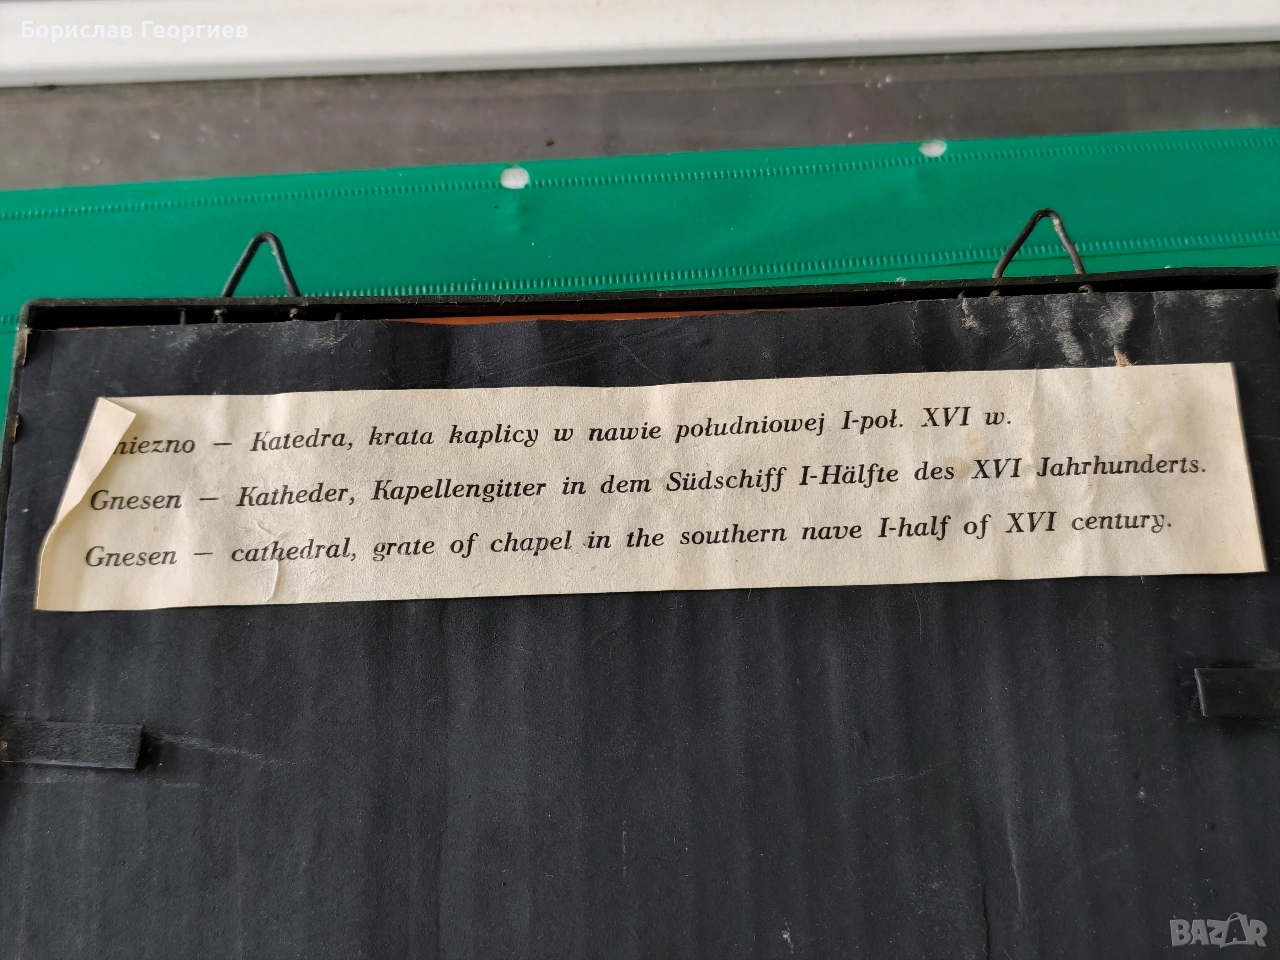 Борислав Георгиев
niezno — Katedra, krata kaplicy w nawie południowej I-poł. XVI w.
Gnesen — Katheder, Kapellengitter in dem Südschiff I-Hälfte des XVI Jahrhunderts.
Gnesen — cathedral, grate of chapel in the southern nave I-half of XVI century.
BAZAR